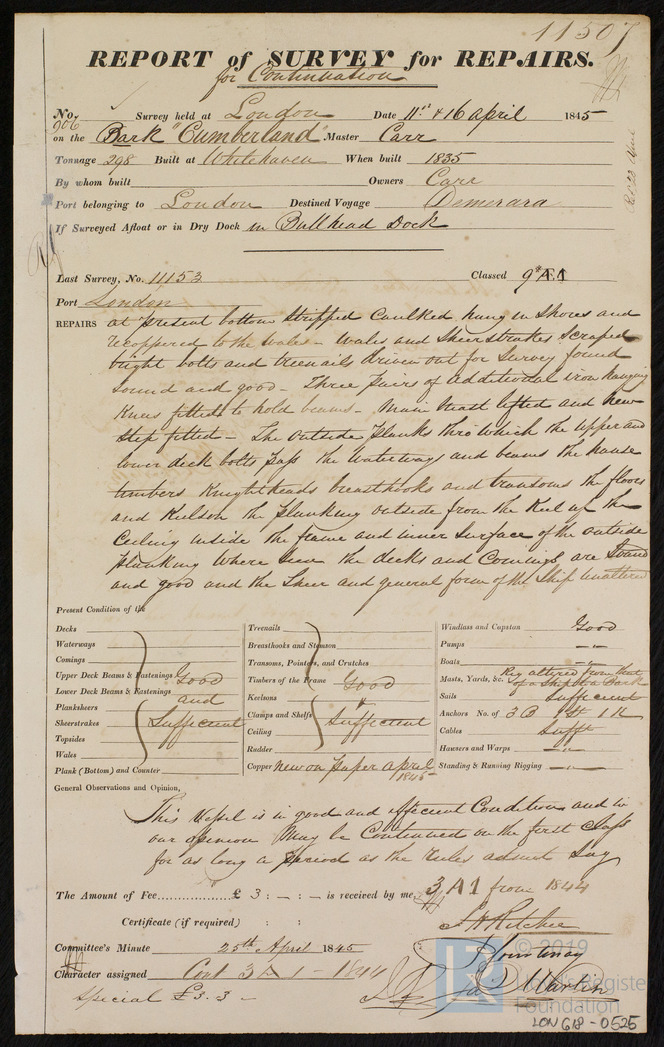 11507
REPORT of SURVEY for REPAIRS.
for Continuation
No. 906 Survey held at London Date 11th & 16 April 1845
on the Bark "Cumberland" Master Carr
Tonnage 298 Built at Whitehaven When built 1835
By whom built Owners Carr
Port belonging to London Destined Voyage Demerara
If Surveyed Afloat or in Dry Dock in Bullhead Dock
Recd 23 April
Last Survey, No. 11153 Classed 9 Æ1
Port London
REPAIRS at present bottom stripped Caulked hung in Shores and
recoppered to the wales - Wales and Sheerstrakes Scraped
bright bolts and treenails driven out for Survey found
Sound and good - Three pairs of additional iron hanging
Knees fitted to hold beams - Main Mast lifted and new
Step fitted - The outside planks thro which the upper and
lower deck bolts pass the Waterways and beams the hawse
timbers Knightheads breasthooks and transoms the floors
and Keelson the planking outside from the Keel up the
Ceiling inside the frame and inner Surface of the outside
planking where seen the decks and Comings are Sound
and good and the Sheer and general form of the Ship unaltered
Present Condition of the
Decks
Waterways
Comings
Upper Deck Beams & Fastenings Good
Lower Deck Beams & Fastenings and
Planksheers
Sheerstrakes Sufficient
Topsides
Wales
Plank (Bottom) and Counter
Treenails
Breasthooks and Stemson
Transoms, Pointers, and Crutches
Timbers of the Frame Good
Keelsons "
Clamps and Shelfs Sufficient
Ceiling
Rudder
Copper New on paper April 1845
Windlass and Capstan Good
Pumps -"-
Boats -"-
Masts, Yards, &c. Rig altered from that of a Ship to a Bark
Sails Sufficient
Anchors No. of 3 B 1 St 1 K
Cables Sufft
Hawsers and Warps -"-
Standing & Running Rigging -"-
General Observations and Opinion,
This Vessel is in good and efficient Condition and in
our opinion May be Continued on the first Class
for as long a period as the Rules admit Say
3 A1 from 1844
The Amount of Fee £ 3 : - : - is received by me,
Certificate (if required) : :
J H Ritchie
P Courtenay
Martin
Committee's Minute 25th April 1845
Character assigned Cont 3 A 1 - 1844
Special £3.3 -
© 2019
Lloyd's Register
Foundation
LON 618-0525